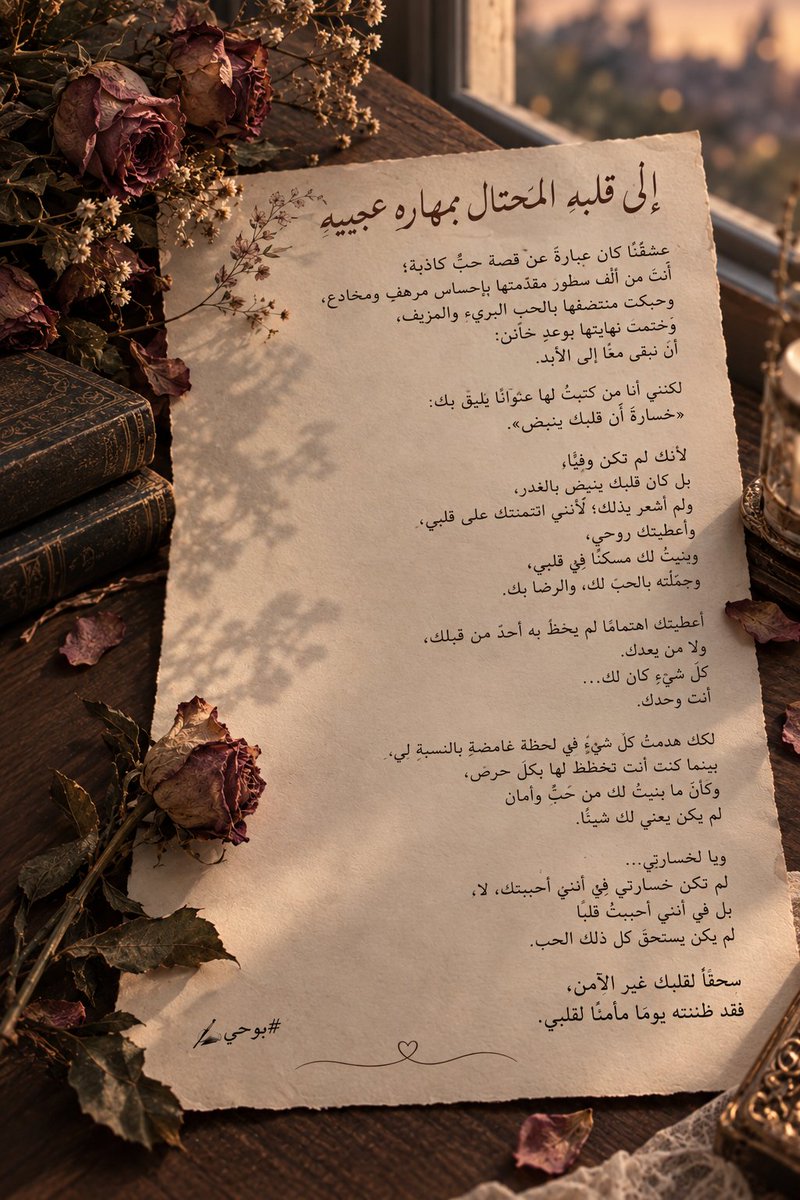 إلى قلبهِ المَحتال بمهاره عجيبهِ
عشقًنًا كان عبارةَ عن قصة حبٌ كاذبة؛
أَنتَ من ألْف سطور مقدّمتها بإحساس مرهفٍ ومخادع،
وحبكت منتضفها بالحب البريءِ والمزيف،
وَختمت نهايتها بوعدِ خاُنن:
أنَ نبقى معًا إلى الأبد.
لكنني أنا من كتبتُ لها عنوَانًا يَليقَ بك:
«خسارةَ أَن قلبك ينبض».
لأنك لم تكن وفيًّا،
بل كان قلبك ينبض بالغدر،
ولم أشعر يذلك؛ لًأنني ائتمنتك على قلبي،
وأعطيتك روحي،
وبنيتُ لك مسكنًا فِيَ قلبي،
وجمّلْته بالحبَ لك، والرضا بك.
أعطيتك اهتمامًا لم يخظَ به أحدّ من قبلك،
ولا من يعدك.
كلَ شيَءٍ كان لك...
أنت وحدك.
لكك هدمتُ كلَ شيْءٍ في لحظة غامضةِ بالنسبةِ لِي،
بينما كنت أنت تخظظ لها بكلَ حرصَ،
وكَأنَ ما بنيتُ لك من حَبٌ وأمان
لم يكن يعني لك شيئًا.
ويا لخسارتِي...
لم تكن خسارتي فِيْ أننيَ أحببتك، لا،
بل في أنني أحببتُ قلبًا
لم يكن يستحقَ كل ذلك الحب.
سحقًاً لقلبك غير الآمن،
فقد ظننته يومَا مأمنًا لقلبي.
#بوحي